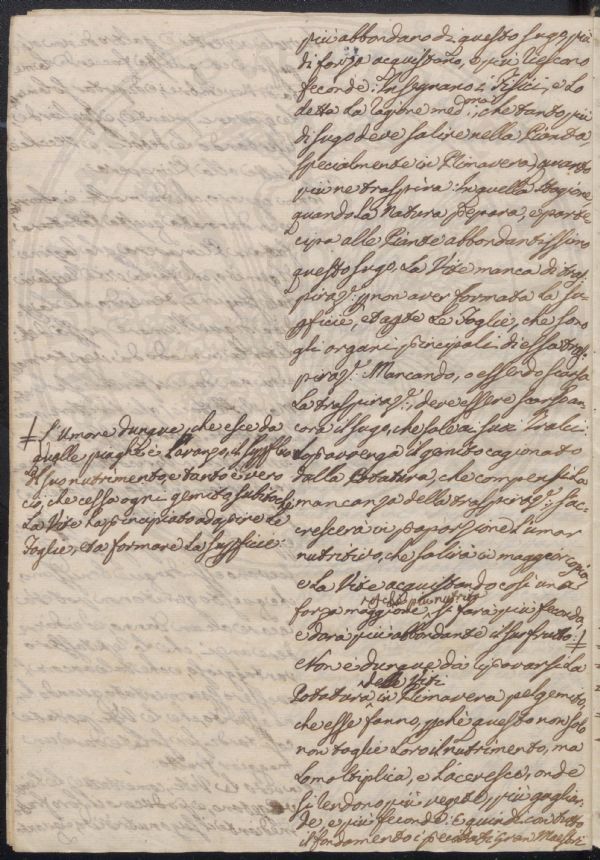 più abbondano di questo sugo, più
di forza acquistano, e più riescono
feconde: Insegnano i Fisici, e lo
detta la ragione medma, che tanto più
di sugo deve salire nella Pianta,
specialmente in Primavera, quanto
più ne traspira: In quella Stagione,
quando la Natura prepara, e parte
cipa alle Piante abbondantissimo
questo sugo, la Vite manca di tras
piraz:e p non aver formata la su-
pficie, ed apte le Foglie, che sono
gli organi principali di essa tras
piraz:e Mancando, o essendo scarsa
la traspiraz:e, deve essere scarso an-
cora il sugo, che sale ai suoi Tralci:
sopravenga il gemito cagionato
dalla Potatura, che compensi la
mancanza della traspiraz:e, s'ac-
crescerà in proporzione l'umor
nutritivo, che salirà in maggior copia,
e la Vite acquistando così una
forza maggiore, si farà più feconda,
e darà più abbondante il suo frutto: ‡
Non è dunque da riprovarsi la
Potatura delle Viti in Primavera pel gemito,
che esse fanno, pchè questo non solo
non toglie loro il nutrimento, ma
lo moltiplica, e l'accresce, onde
si rendono più vegete, più gagliar
de, e più feconde: E quindi con tutto
il fondamento i Gran Maestri
‡ L'Umore dunque, che esce da
quelle piaghe è l'avanzo, il supfluo
del suo nutrimento, e tanto è vero
ciò, che cessa ogni gemito subito che
la Vite ha principiato ad aprire le
Foglie, e a formare la supficie: